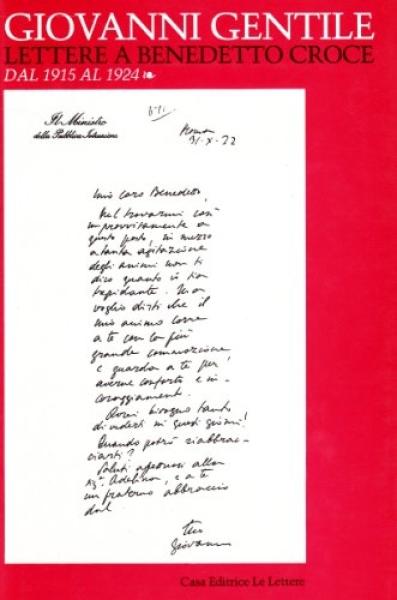 GIOVANNI GENTILE
LETTERE A BENEDETTO CROCE
DAL 1915 AL 1924
Il Ministro
della Pubblica Istruzione
Roma
31-X-22
Mio caro Benedetto,
Nel trovarmi così
improvvisamente a
questo posto, in mezzo
a tanta agitazione
degli animi non ti
dico quanto io sia
trepidante. Ma
voglio dirti che il
mio animo corre
a te con la più
grande commozione,
e guarda a te per
averne conforto e in-
coraggiamento.
Avrei bisogno tanto
di vederti in questi giorni!
Quando potrò riabbrac-
ciarti?
Saluti affettuosi alla
Sig.ª Adelina, e a te
un fraterno abbraccio
dal
tuo
Giovanni
Casa Editrice Le Lettere